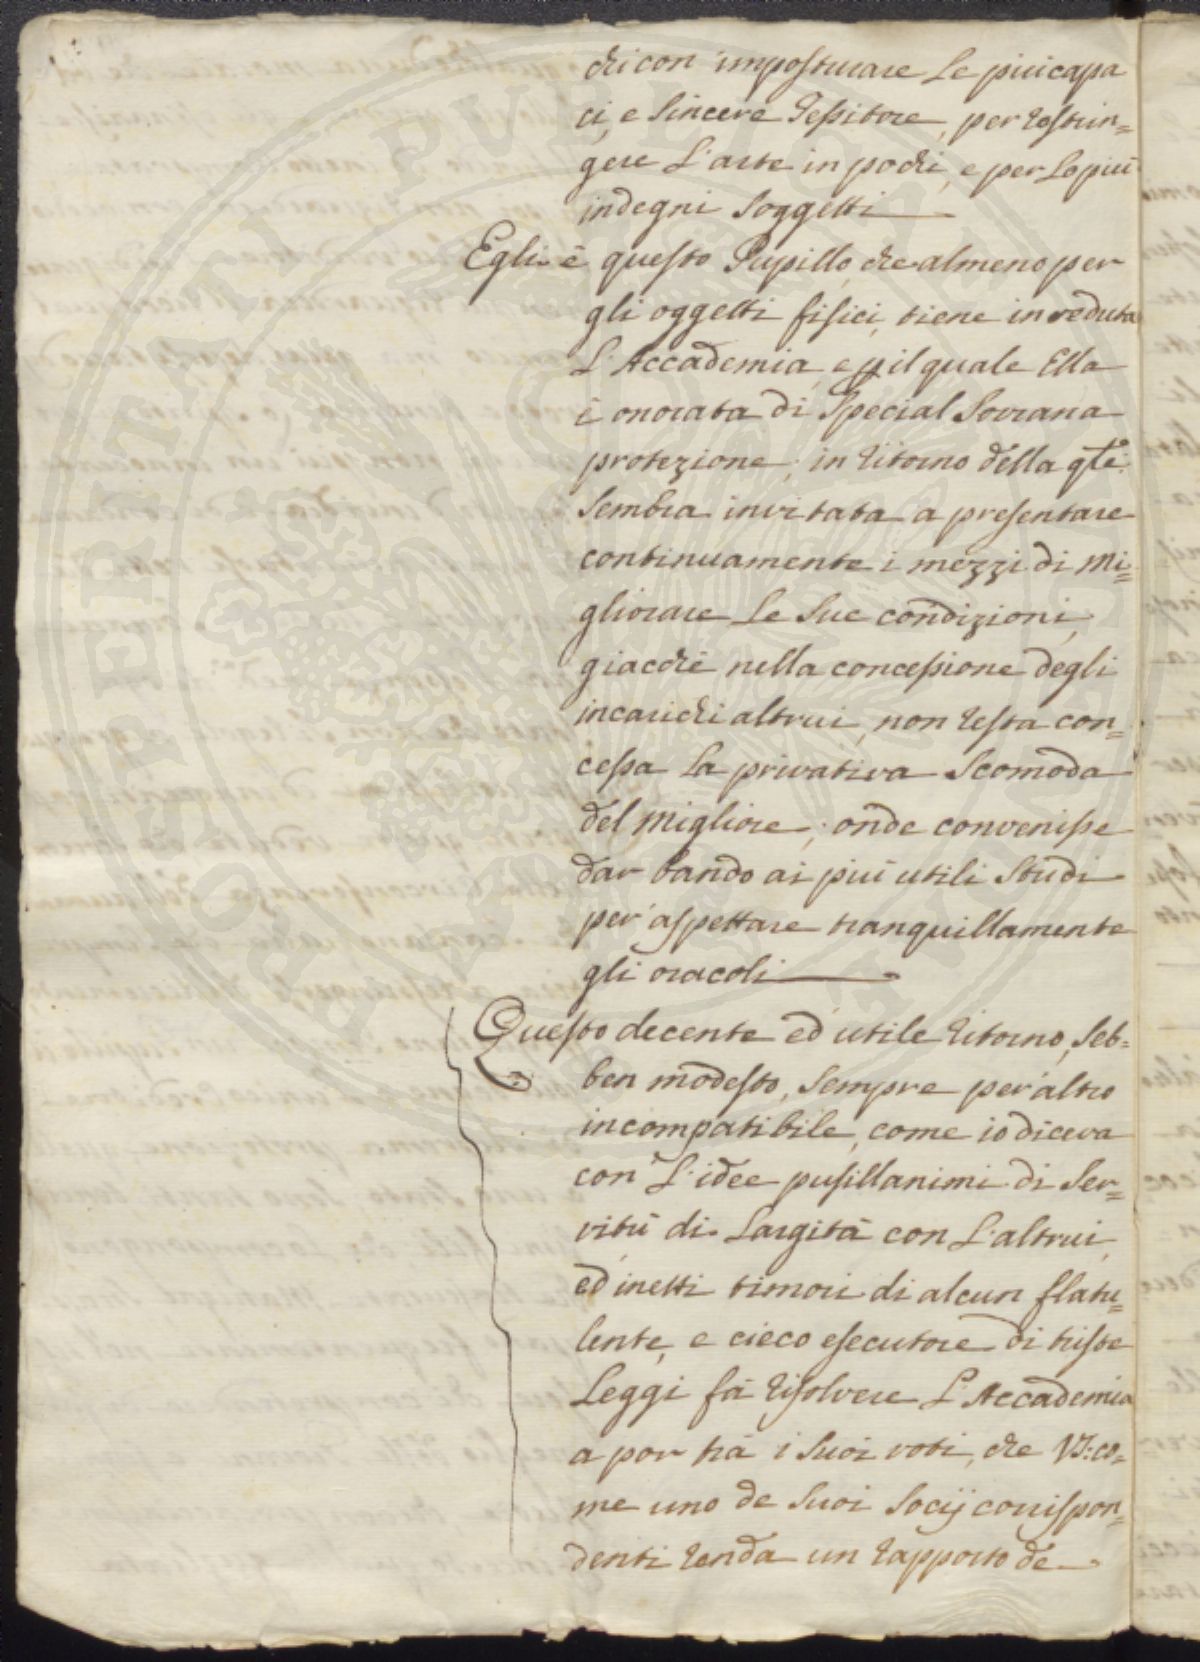 chi con imposturare le più capa
ci, e sincere Tessitore, per restrin=
gere L'arte in pochi, e per lo più
indegni soggetti
Egli è questo Pupillo, che almeno per
gli oggetti fisici, tiene in veduta
L'Accademia, e p il quale Ella
è onorata di special sovrana
protezione; in ritorno della qle.
sembra invitata a presentare
continuamente i mezzi di mi=
gliorare le sue condizioni,
giacchè nella concessione degli
incarichi altrui, non resta con=
cessa la privativa scomoda
del migliore; onde convenisse
dar bando ai più utili studi
per aspettare tranquillamente
gli oracoli
Questo decente ed utile ritorno, seb=
ben modesto, sempre per altro
incompatibile, come io diceva
con L'idee pusillanimi di ser=
vitù di largità con L'altrui,
ed inetti timori di alcun flatu=
lente, e cieco esecutore di triste
Leggi fà risolvere L'Accademia
a por trà i suoi voti, che VS: co=
me uno de suoi socij corrispon=
denti renda un rapporto de
PROSPERITATI PVBLICAE